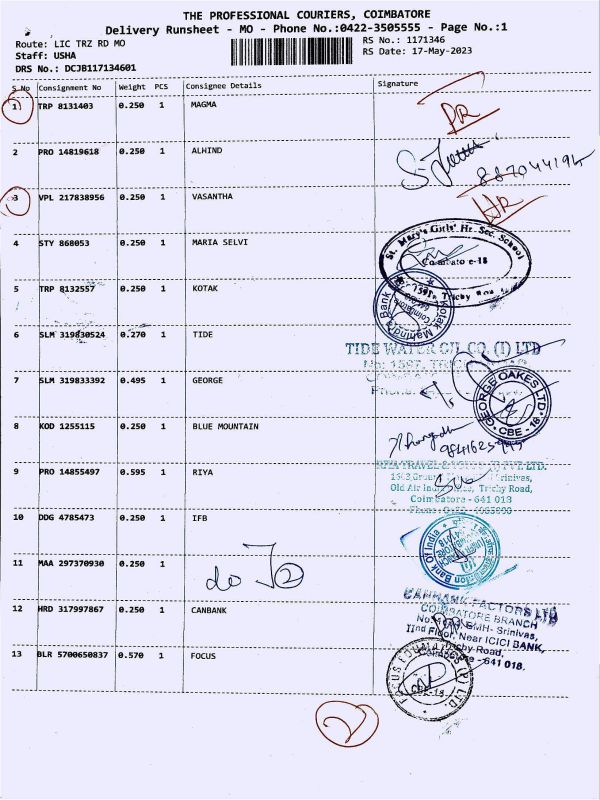 THE PROFESSIONAL COURIERS, COIMBATORE
Delivery Runsheet - MO - Phone No.:0422-3505555 - Page No.:1
Route: LIC TRZ RD MO
RS No.: 1171346
Staff: USHA
RS Date: 17-May-2023
DRS No.: DCJB117134601
S No Consignment No Weight PCS Consignee Details Signature
1 TRP 8131403 0.250 1 MAGMA
2 PRO 14819618 0.250 1 ALHIND
3 VPL 217838956 0.250 1 VASANTHA
4 STY 868053 0.250 1 MARIA SELVI
St. Mary's Girls' Hr. Sec. School
5 TRP 8132557 0.250 1 KOTAK
Kotak Mahindra Bank
Coimbatore
6 SLM 319830524 0.270 1 TIDE
TIDE WATER OIL CO. (I) LTD
7 SLM 319833392 0.495 1 GEORGE
GEORGE OAKES LTD.
CBE - 18
8 KOD 1255115 0.250 1 BLUE MOUNTAIN
9 PRO 14855497 0.595 1 RIYA
Old Air Trichy Road,
Coimbatore - 641 018
10 DDG 4785473 0.250 1 IFB
Bank Of India
11 MAA 297370930 0.250 1
do
12 HRD 317997867 0.250 1 CANBANK
CANBANK FACTORS LTD
COIMBATORE BRANCH
Srinivas,
IInd Floor, Near ICICI BANK,
Trichy Road,
Coimbatore - 641 018.
13 BLR 5700650837 0.570 1 FOCUS
2